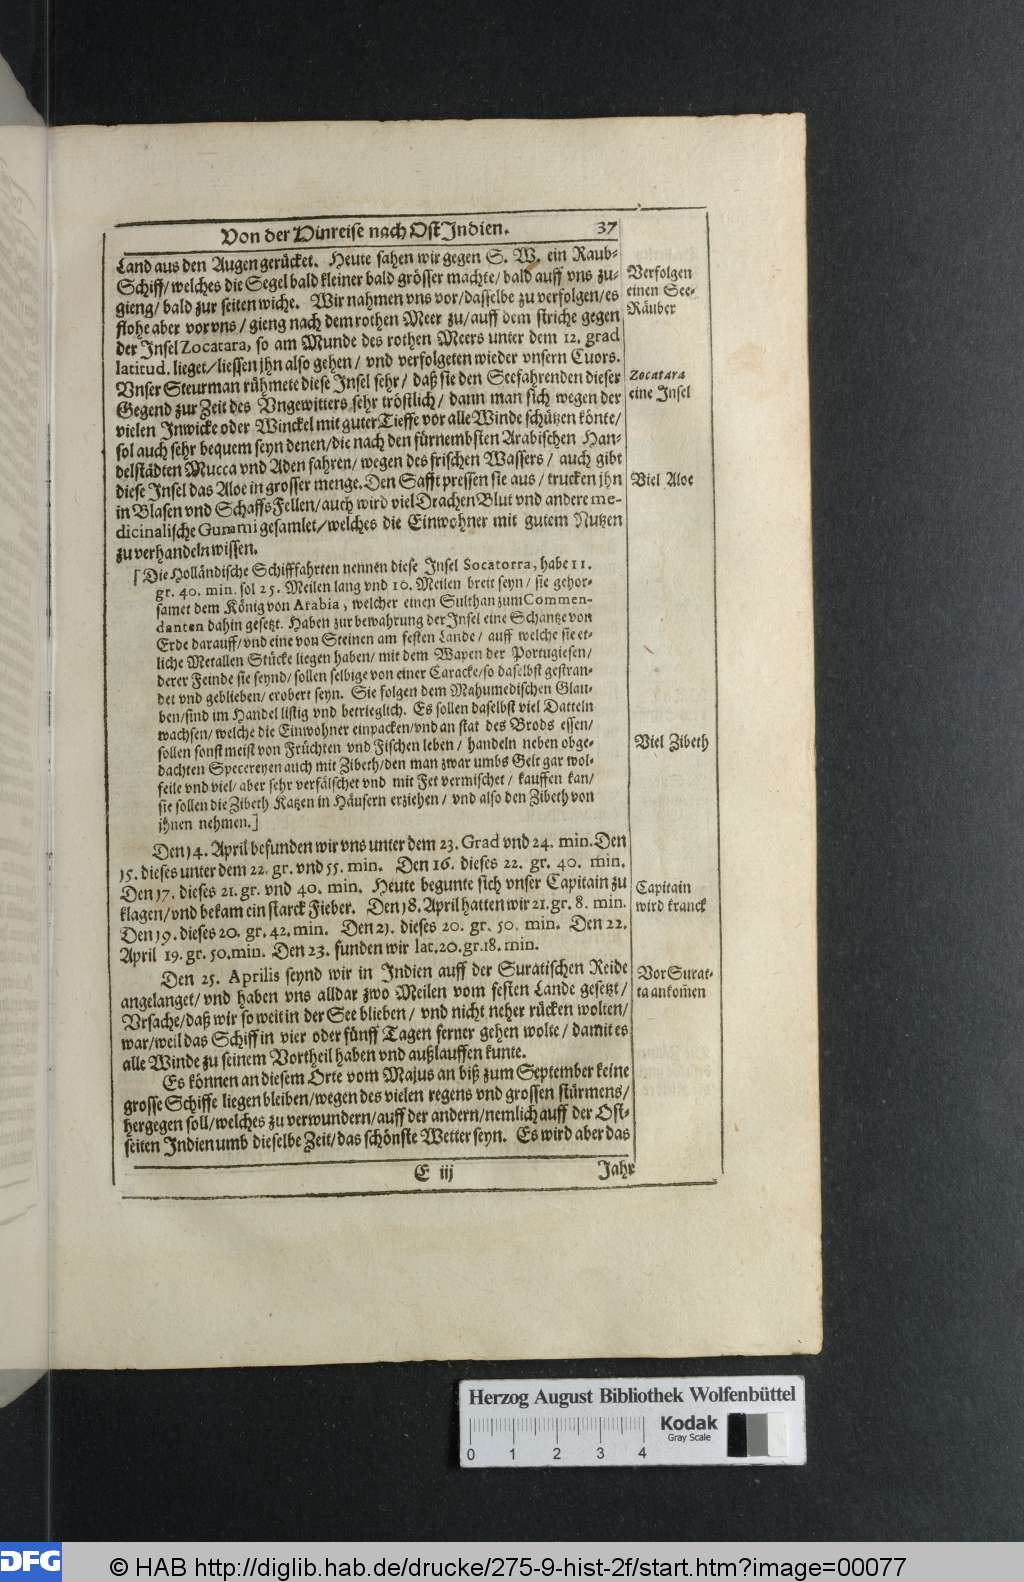 Von der Hinreise nach Ost Indien. 37
Land aus den Augen gerücket. Heute sahen wir gegen S. W. ein Raub-
Schiff/ welches die Segel bald kleiner bald grösser machte/ bald auff vns zu-
gieng/ bald zur seiten wiche. Wir nahmen vns vor/ dasselbe zu verfolgen/ es
flohe aber vor vns/ gieng nach dem rothen Meer zu/ auff dem striche gegen
der Insel Zocatara, so am Munde des rothen Meers unter dem 12. grad
latitud. lieget/ liessen jhn also gehen/ vnd verfolgeten wieder vnsern Cuors.
Vnser Steurman rühmete diese Insel sehr/ daß sie den Seefahrenden dieser
Gegend zur Zeit des Vngewitters sehr tröstlich/ dann man sich wegen der
vielen Inwicke oder Winckel mit guter Tieffe vor alle Winde schützen könte/
sol auch sehr bequem seyn denen/ die nach den fürnembsten Arabischen Han-
delstädten Mucca vnd Aden fahren/ wegen des frischen Wassers/ auch gibt
diese Insel das Aloe in grosser menge. Den Safft pressen sie aus/ trucken jhn
in Blasen vnd Schaffs Fellen/ auch wird viel Drachen Blut vnd andere me-
dicinalische Gummi gesamlet/ welches die Einwohner mit gutem Nutzen
zu verhandeln wissen.
Verfolgen
einen See-
Räuber
Zocatara
eine Insel
Viel Aloe
[Die Holländische Schifffahrten nennen diese Insel Socatorra, habe 11.
gr. 40. min. sol 25. Meilen lang vnd 10. Meilen breit seyn/ sie gehor-
samet dem König von Arabia, welcher einen Sulthan zum Commen-
danten dahin gesetzt. Haben zur bewahrung der Insel eine Schantze von
Erde darauff/ vnd eine von Steinen am festen Lande/ auff welche sie et-
liche Metallen Stücke liegen haben/ mit dem Wapen der Portugiesen/
derer Feinde sie seynd/ sollen selbige von einer Caracke/ so daselbst gestran-
det vnd geblieben/ erobert seyn. Sie folgen dem Mahumedischen Glau-
ben/ sind im Handel listig vnd betrieglich. Es sollen daselbst viel Datteln
wachsen/ welche die Einwohner einpacken/ vnd an stat des Brods essen/
sollen sonst meist von Früchten vnd Fischen leben/ handeln neben obge-
dachten Specereyen auch mit Zibeth/ den man zwar umbs Gelt gar wol-
feile vnd viel/ aber sehr verfälschet vnd mit Fet vermischet/ kauffen kan/
sie sollen die Zibeth Katzen in Häusern erziehen/ vnd also den Zibeth von
jhnen nehmen.]
Viel Zibeth
Den 14. April befunden wir vns unter dem 23. Grad vnd 24. min. Den
15. dieses unter dem 22. gr. vnd 55. min. Den 16. dieses 22. gr. 40. min.
Den 17. dieses 21. gr. vnd 40. min. Heute begunte sich vnser Capitain zu
klagen/ vnd bekam ein starck Fieber. Den 18. April hatten wir 21. gr. 8. min.
Den 19. dieses 20. gr. 42. min. Den 21. dieses 20. gr. 50. min. Den 22.
April 19. gr. 50. min. Den 23. funden wir lat. 20. gr. 18. min.
Capitain
wird kranck
Den 25. Aprilis seynd wir in Indien auff der Suratischen Reide
angelanget/ vnd haben vns alldar zwo Meilen vom festen Lande gesetzt/
Vrsache/ daß wir so weit in der See blieben/ vnd nicht neher rücken wolten/
war/ weil das Schiff in vier oder fünff Tagen ferner gehen wolte/ damit es
alle Winde zu seinem Vortheil haben vnd außlauffen kunte.
Vor Surat-
ta ankom̃en
Es können an diesem Orte vom Majus an biß zum September keine
grosse Schiffe liegen bleiben/ wegen des vielen regens vnd grossen stürmens/
hergegen soll/ welches zu verwundern/ auff der andern/ nemlich auff der Ost-
seiten Indien umb dieselbe Zeit/ das schönste Wetter seyn. Es wird aber das
E iij Jahr
Herzog August Bibliothek Wolfenbüttel
Kodak
Gray Scale
0 1 2 3 4
DFG © HAB http://diglib.hab.de/drucke/275-9-hist-2f/start.htm?image=00077